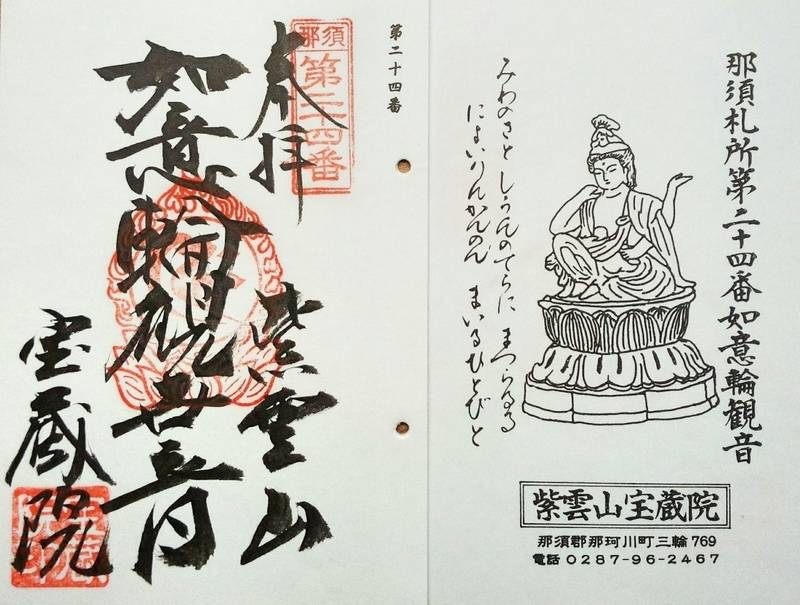 那須札所第二十四番如意輪観音
みわのさと しうんのてらに まつらるる
にょいりんかんのん まいるひとびと
紫雲山宝蔵院
那須郡那珂川町三輪769
電話 0287-96-2467
第二十四番
那須
第二十四番
奉拝
紫雲山
如意輪観世音
宝蔵院